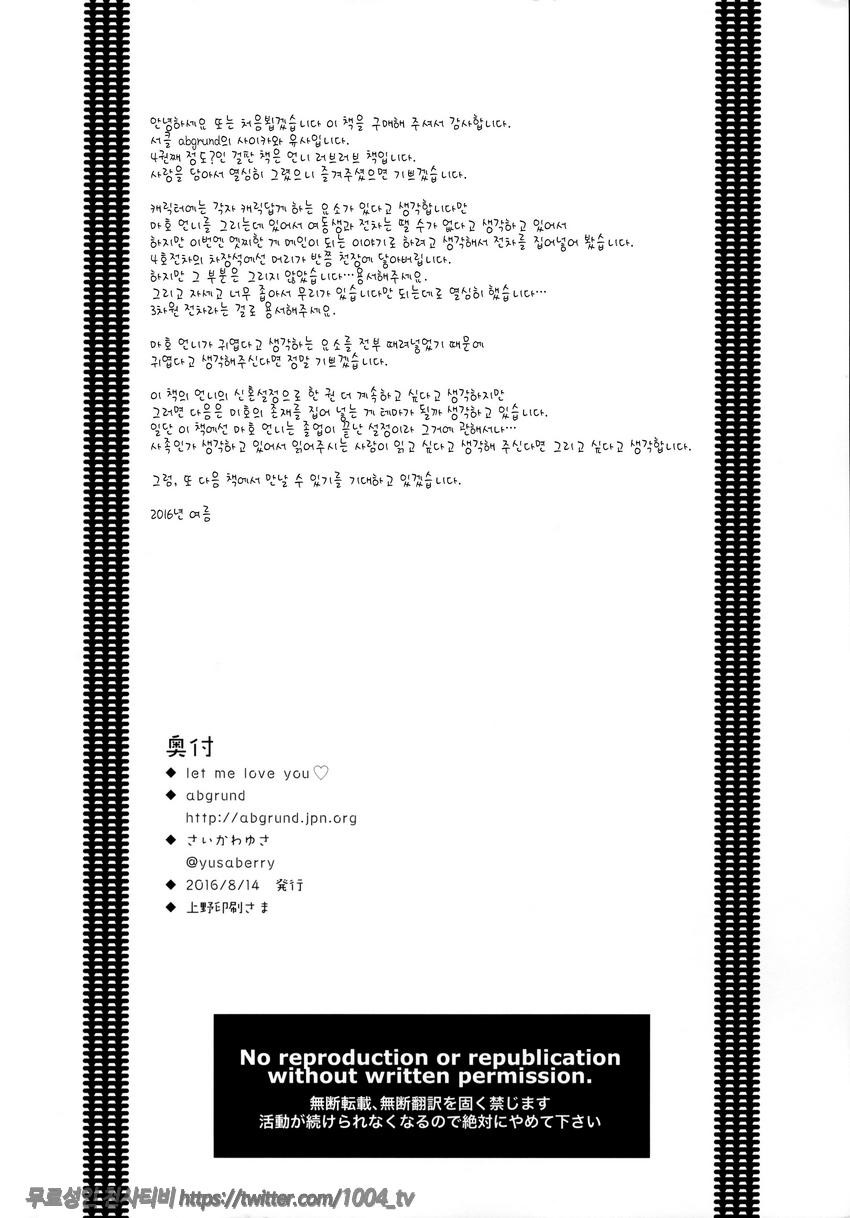 안녕하세요 또는 처음뵙겠습니다 이 책을 구매해 주셔서 감사합니다.
서클 abgrund의 사이카와 유사입니다.
4권째 정도?인 걸판 책은 언니 러브러브 책입니다.
사랑을 담아서 열심히 그렸으니 즐겨주셨으면 기쁘겠습니다.
캐릭터에는 각자 캐릭답게 하는 요소가 있다고 생각합니다만
마호 언니를 그리는데 있어서 여동생과 전차는 땔 수가 없다고 생각하고 있어서
하지만 이번엔 엣찌한 게 메인이 되는 이야기로 하려고 생각해서 전차를 집어넣어 봤습니다.
4호전차의 차장석에선 머리가 반쯤 천장에 닿아버립니다.
하지만 그 부분은 그리지 않았습니다…용서해주세요.
그리고 자세고 너무 좁아서 무리가 있습니다만 되는데로 열심히 했습니다…
3차원 전차라는 걸로 용서해주세요.
마호 언니가 귀엽다고 생각하는 요소를 전부 때려넣었기 때문에
귀엽다고 생각해주신다면 정말 기쁘겠습니다.
이 책의 언니의 신혼설정으로 한 권 더 계속하고 싶다고 생각하지만
그러면 다음은 미호의 존재를 집어 넣는 게 테마가 될까 생각하고 있습니다.
일단 이 책에선 마호 언니는 졸업이 끝난 설정이라 그거에 관해서나…
사족인가 생각하고 있어서 읽어주시는 사람이 읽고 싶다고 생각해 주신다면 그리고 싶다고 생각합니다.
그럼, 또 다음 책에서 만날 수 있기를 기대하고 있겠습니다.
2016년 여름
奥付
◆ let me love you♡
◆ abgrund
http://abgrund.jpn.org
◆ さいかわゆさ
@yusaberry
◆ 2016/8/14 発行
◆ 上野印刷さま
No reproduction or republication
without written permission.
無断転載、無断翻訳を固く禁じます
活動が続けられなくなるので絶対にやめて下さい
무료성인 천사티비 https://twitter.com/1004_tv